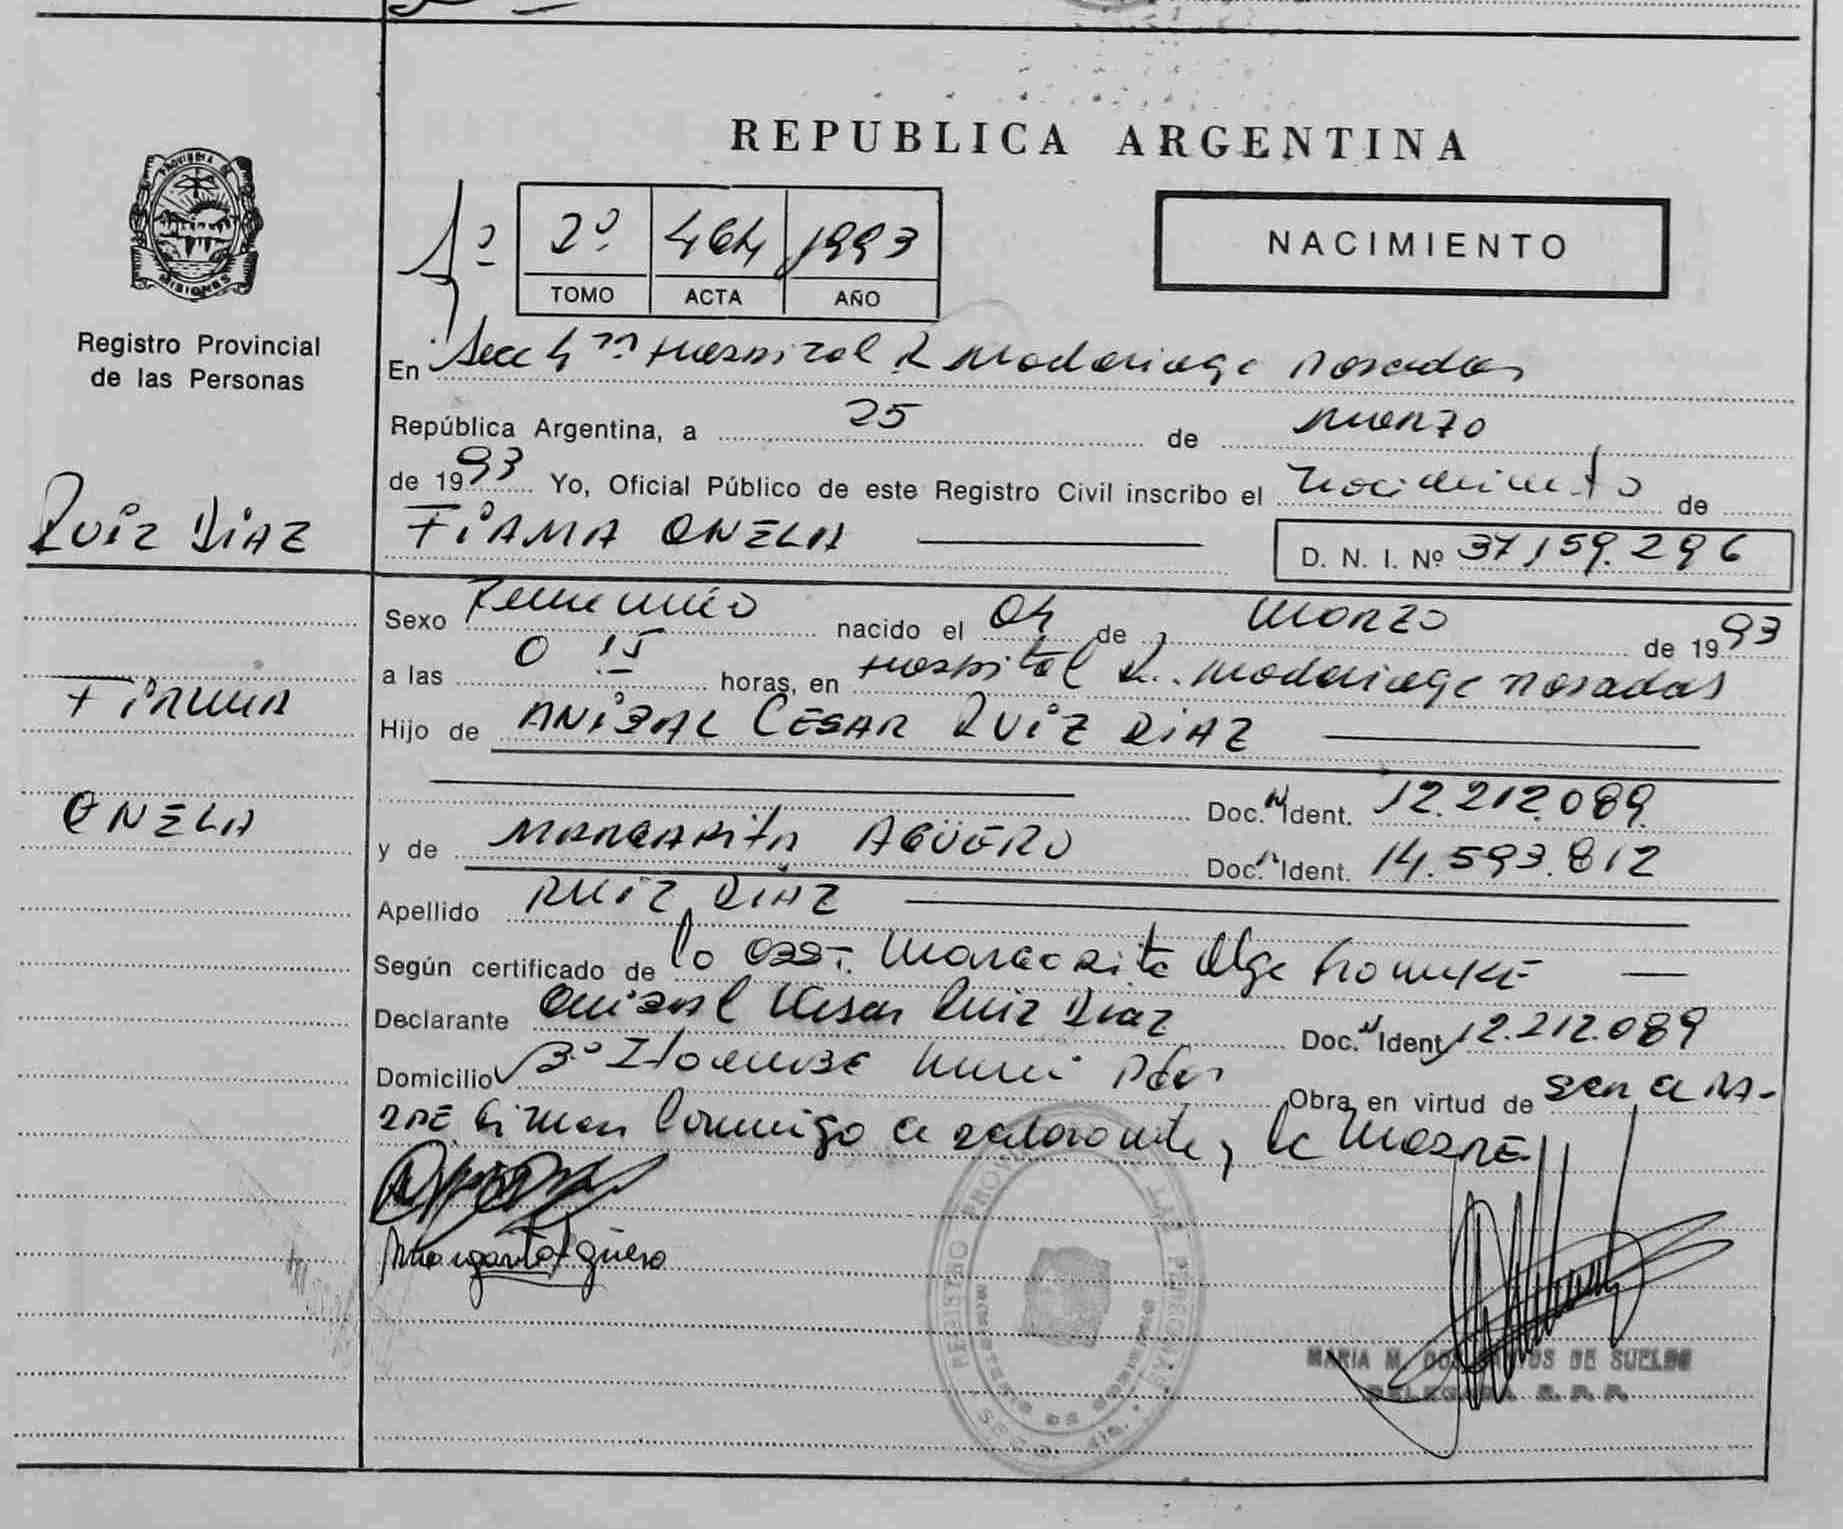 REPUBLICA ARGENTINA
PROVINCIA DE MISIONES
Registro Provincial
de las Personas
1º
2º 464 1993
TOMO ACTA AÑO
NACIMIENTO
En Secc 4ta Hospital R Madariaga Posadas
República Argentina, a 25 de marzo
de 1993 Yo, Oficial Público de este Registro Civil inscribo el nacimiento de
RUIZ DIAZ
FIAMA ONELA
D. N. I. Nº 37,159.296
Sexo Femenino nacido el 04 de marzo de 1993
a las 0 15 horas, en Hospital R. Madariaga Posadas
FIAMA
Hijo de ANIBAL CESAR RUIZ DIAZ
Doc. N Ident. 12.212.089
ONELA
y de MARGARITA AGÜERO Doc. N Ident. 14.593.812
Apellido RUIZ DIAZ
Según certificado de la obst. Margarita Olga
Declarante Anibal Cesar Ruiz Diaz Doc. N Ident 12.212.089
Domicilio Bº Itaembe mini Pdas Obra en virtud de ser el PA-
DRE firman conmigo el declarante y la MADRE
Margarita Agüero
REGISTRO PROVINCIAL DE LAS PERSONAS
MINISTERIO DE GOBIERNO
MARIA M. DOS SANTOS DE SUELDO
DELEGADA R. P. P.